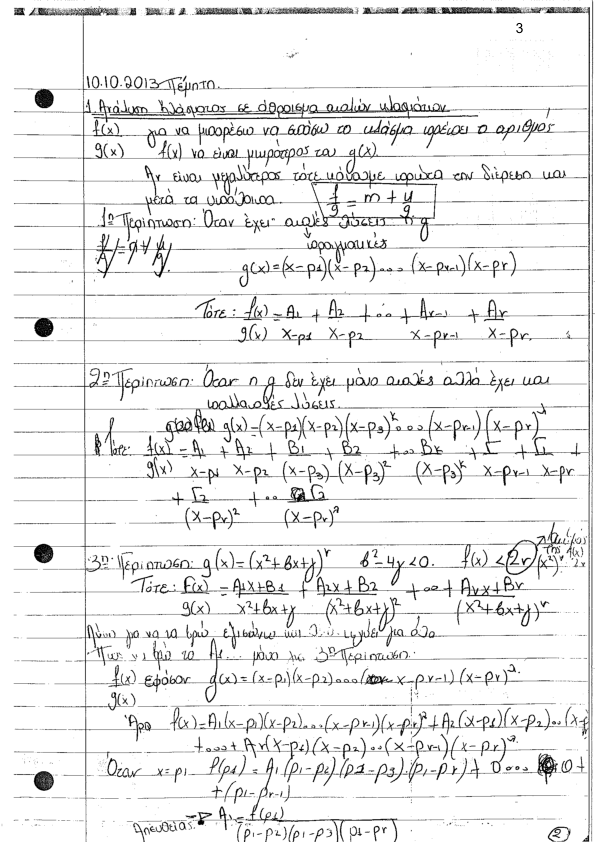 3
10.10.2013 Πέμπτη.
1. Ανάλυση κλάσματος σε άθροισμα απλών κλασμάτων
f(x) για να μπορέσω να σπάσω το κλάσμα πρέπει ο αριθμός
g(x) f(x) να είναι μικρότερος του g(x).
Αν είναι μεγαλύτερος τότε κάνουμε πρώτα την διέρεση και
μετά τα υπόλοιπα. f/g = m + υ/g
1η Περίπτωση: Όταν έχει απλές λύσεις η g
πραγματικές
g(x)=(x-p1)(x-p2)...(x-pν-1)(x-pν)
Τότε: f(x)/g(x) = A1/(x-p1) + A2/(x-p2) +...+ Aν-1/(x-pν-1) + Aν/(x-pν).
2η Περίπτωση: Όταν η g δεν έχει μόνο απλές αλλά έχει και
πολλαπλές λύσεις.
g(x)=(x-p1)(x-p2)(x-p3)^k....(x-pν-1)(x-pν)^λ
Τότε: f(x)/g(x) = A1/(x-p1) + A2/(x-p2) + B1/(x-p3) + B2/(x-p3)^2 +... Bk/(x-p3)^k + Γ/(x-pν-1) + Γ1/(x-pν) +
+ Γ2/(x-pν)^2 +... Γλ/(x-pν)^λ
3η Περίπτωση: g(x)=(x²+βx+γ)^ν β²-4γ<0. f(x) < 2ν (x²)^ν
Τότε: f(x)/g(x) = (A1x+B1)/(x²+βx+γ) + (A2x+B2)/(x²+βx+γ)² +...+ (Aνx+Bν)/(x²+βx+γ)^ν
για να τα βρω εξισώνω και για όλα
να βρω το A1... μόνο για 3η Περίπτωση:
f(x)/g(x) εφόσον g(x)=(x-p1)(x-p2)...(x-pν-1)(x-pν)^λ.
Άρα f(x)=A1(x-p1)(x-p2)...(x-pν-1)(x-pν)^λ+A2(x-p1)(x-p2)..(x-
+...+ Aν(x-p1)(x-p2)..(x-pν-1)(x-pν)^λ.
Όταν x=p1 f(p1)=A1(p1-p2)(p1-p3).(p1-pν)+0... 0+
+(p1-pν-1)
Απευθείας: A1= f(p1)/(p1-p2)(p1-p3)(p1-pν)
2